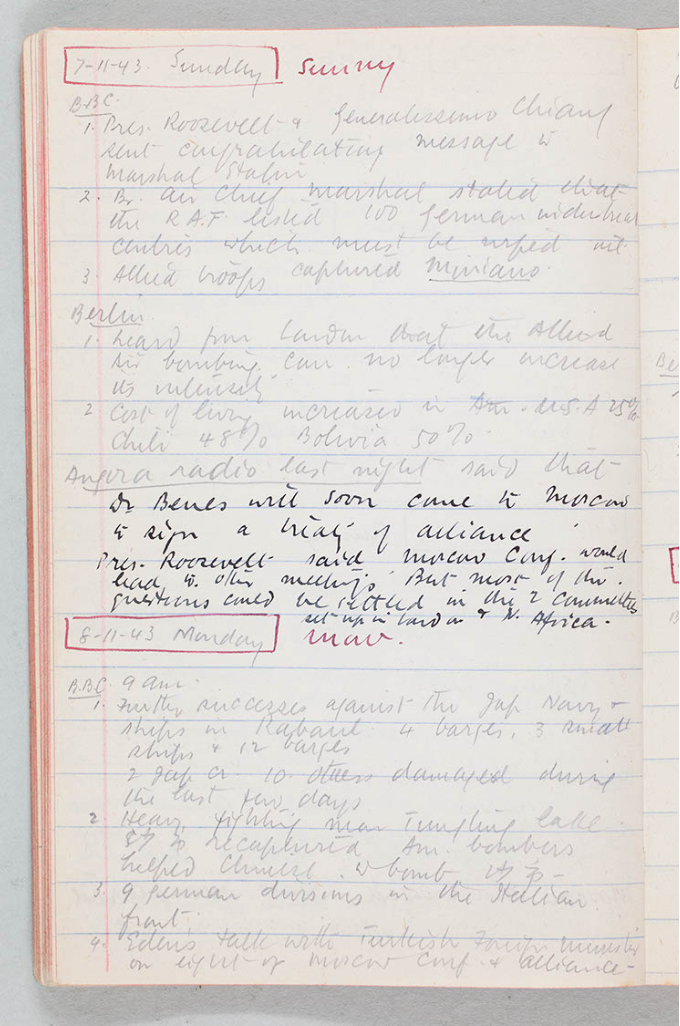 7-11-43. Sunday Sunny
B.B.C.
1. Pres. Roosevelt & Generalissimo Chiang
sent congratulating message to
Marshal Stalin
2. Br. Air Chief Marshal stated that
the R.A.F. listed 100 German industrial
centres which must be wiped out.
3. Allied troops captured Mirano.
Berlin.
1. heard from London that the Allied
Air bombing can no longer increase
its intensity
2 Cost of living increased in U.S.A 25%
Chili 48% Bolivia 50%.
Angora radio last night said that
Dr Benes will soon come to Moscow
to sign a treaty of alliance
Pres. Roosevelt said Moscow Conf. would
lead to other meetings But most of the
questions could be settled in the 2 Committees
set up in London & N. Africa.
8-11-43 Monday
B.B.C. 9 am.
1. Further successes against the Jap Navy &
ships in Rabaul. 4 barges, 3 small
ships & 12 barges
2 Jap Cr. 10 others damaged during
the last few days
2. Heavy fighting near Tungting lake
recaptured Am. bombers
helped Chinese to bomb
3. 9 German divisions in the Italian
front.
4. Eden's talk with Turkish Foreign minister
on Moscow Conf. & alliance-